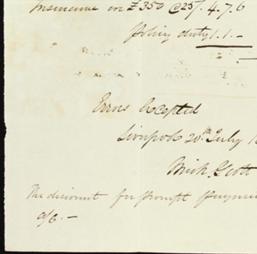 Insurance on £350 @25/. 4.7.6
Policy duty 1.1.-
Errors Excepted
Liverpool 20th July
Mich. Scott
The discount for prompt